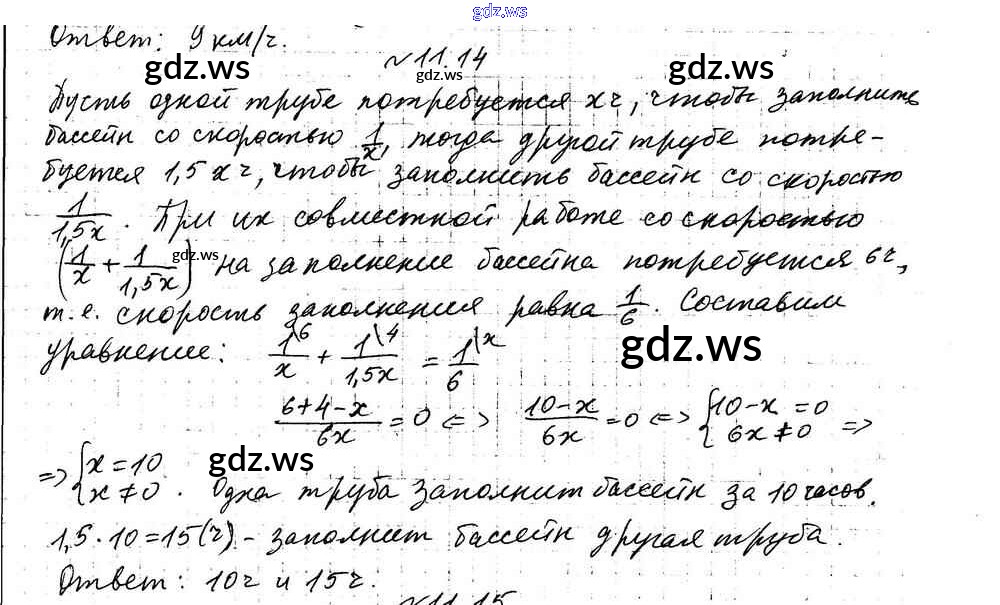 gdz.ws
Ответ: 9 км/ч.
№11.14
gdz.ws gdz.ws gdz.ws
Пусть одной трубе потребуется x ч, чтобы заполнить
бассейн со скоростью 1/x, тогда другой трубе потре-
буется 1,5 x ч, чтобы заполнить бассейн со скоростью
1/1,5x. При их совместной работе со скоростью
(1/x + 1/1,5x) gdz.ws на заполнение бассейна потребуется 6ч,
т.е. скорость заполнения равна 1/6. Составим
уравнение: 1\6/x + 1\4/1,5x = 1\x/6
gdz.ws
6+4-x/6x = 0 <=> 10-x/6x = 0 <=> {10-x = 0 6x ≠ 0 =>
=> {x = 10 x ≠ 0. Одна труба заполнит бассейн за 10 часов.
gdz.ws
1,5 · 10 = 15 (ч) - заполнит бассейн другая труба.
Ответ: 10ч и 15ч.
№11.15